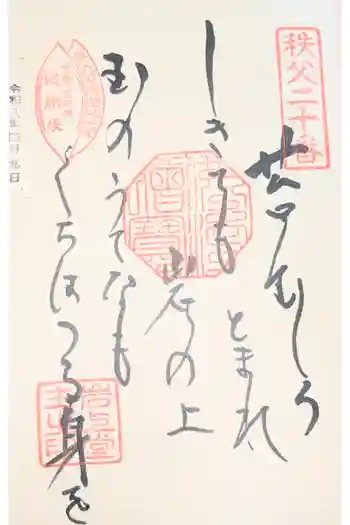 秩父二十番
苔むしろ
しきても
とまれ
岩の上
玉のうてなも
くちはつる身を
令和八年四月九日